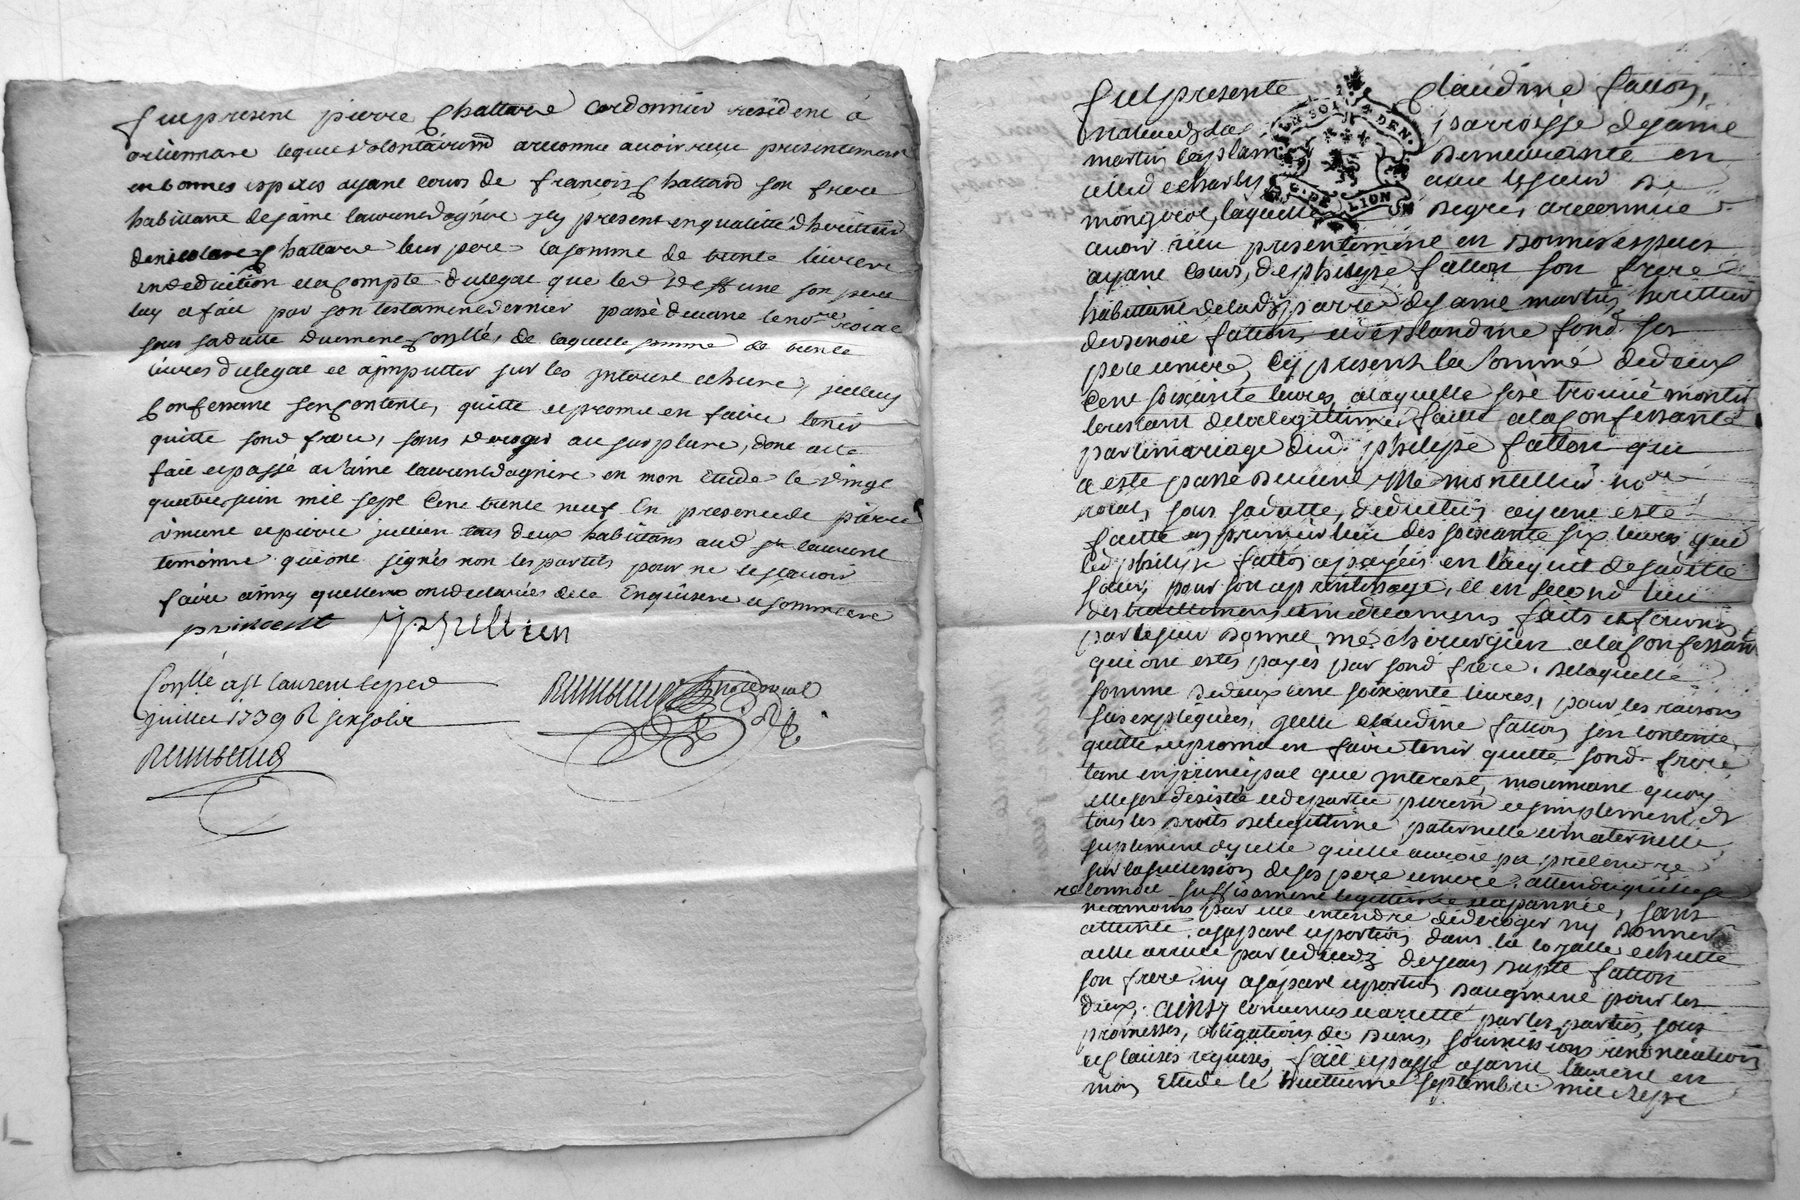 fut present pierre Chattard Cordonnier resident à
lequel volontairement a reconnu avoir receu presentement
en bonnes especes ayant cours de françois Chattard son frere
habittant de saint laurent dagnire icy present en qualitté d'heritier
de nicolas Chattard leur pere la somme de trente livres
en deduction et a Compte du legat que led deffunt son pere
luy a fait par son testament dernier passé devant le no.re roial
sous sa datte duement Conllé, de laquelle somme de trente
livres du legat et a imputter sur les interest echeus, icelluy
Confessant son Contente, quitte et promet en faire tenir
quitte sond frere, sans deroger au surplus, dont acte
fait et passé a saint laurent dagnire en mon Etude le vingt
quatre juin mil sept Cent trente neuf En presence de pierre
et pierre jullien tous deux habittans aud st laurent
temoins qui ont signés non les parties pour ne le sçavoir
faire ainsy quelles ont declarées de ce Enquises et sommées
jullien
Conllé a st laurent le
juillet 1739 R six sols
no.re roial
fut presente Claudine fatton,
parroisse de saint
martin demeurante en
avec le sieur de
laquelle de gré, a reconnu
avoir receu presentement en bonnes especes
ayant cours, de philipe fatton son frere
habittant de lad. parroisse de saint martin, heritier
de benoit fatton et de Claudine fond ses
pere et mere, Cy present la somme de deux
Cent soixante livres, a laquelle s'est trouvé monter
le restant de la legittime, faitte a la Confessante
par le mariage dud. philipe fatton qui
a esté passé devant Me montellier no.re
roial, sous sa datte, deduction ayant esté
faitte en premier lieu des soixante six livres que
led philipe fatton a payés en l'acquit de sa ditte
soeur, pour son aprentissage, et en second lieu
des traittemens et medicamens faits et fournis
par le sieur me chirurgien a la Confessante
qui ont estés payés par sond frere. de laquelle
somme de deux Cent soixante livres, pour les raisons
sus expliquées, icelle Claudine fatton s'en Contente,
quitte et promet en faire tenir quitte sond. frere
tant en principal que interest, moiennant quoy
elle s'est desistée et departie purement et simplement de
tous les droits de legittime paternelle et maternelle
suplement d'icelle quelle auroit pu pretendre
sur la succession de ses pere et mere, attendu quelle se
reconnoit suffisament legittimée et apannée, sans
neamoins par elle entendre deroger ny donner
atteinte a sa part et portion dans la loyalle echutte
a elle arrivée par le decez de jean bapte fatton
son frere, ny a sa part et portion d'augment pour les
deux. ainsy Convenu et arretté par les parties sous
promesses, obligations de biens, soumissions renonciations
et clauses requises, fait et passé a saint laurent en
mon Etude le huittieme septembre mil sept